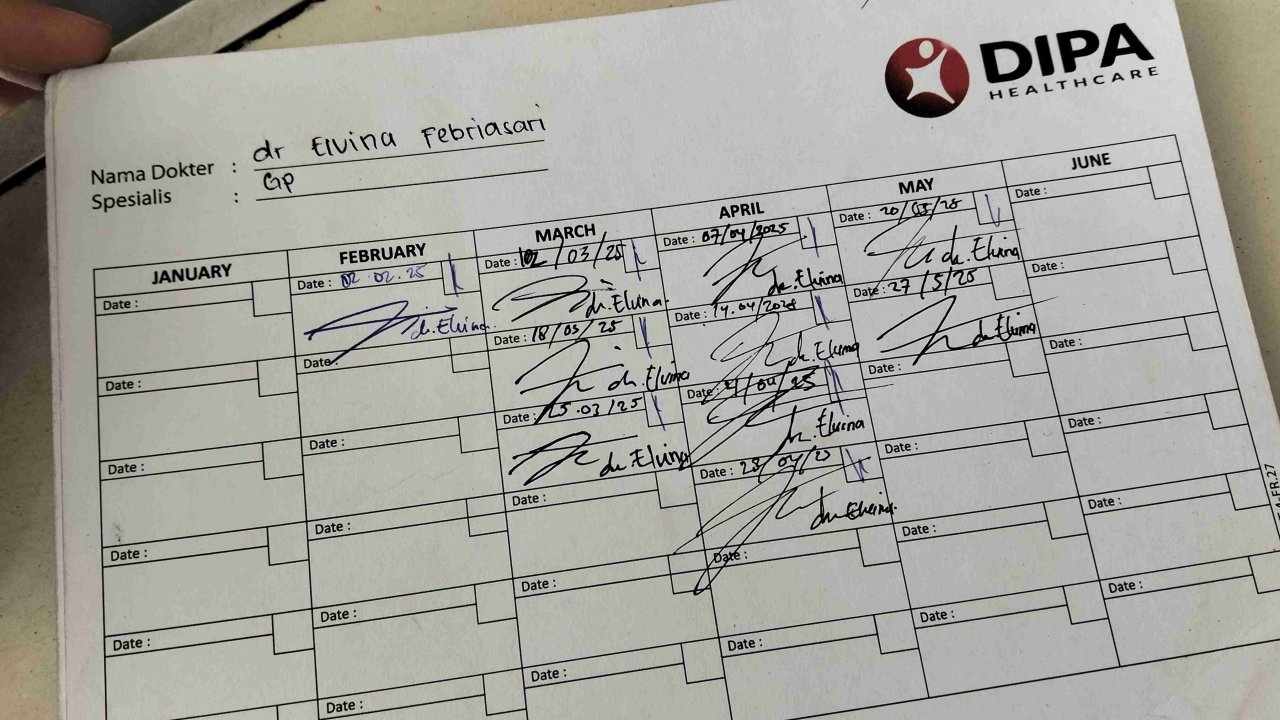 DIPA
HEALTHCARE
Nama Dokter : dr Elvina Febriasari
Spesialis : GP
JANUARY
Date :
Date :
Date :
Date :
Date :
FEBRUARY
Date : 02.02.25
dr. Elvina
Date :
Date :
Date :
Date :
Date :
MARCH
Date : 02/03/25
dr. Elvina
Date : 18/03/25
dr. Elvina
Date : 25.03/25
dr. Elvina
Date :
Date :
Date :
APRIL
Date : 07/04/2025
dr. Elvina
Date : 14.04/2025
dr. Elvina
Date : 21/04/25
dr. Elvina
Date : 28/04/25
dr. Elvina
Date :
Date :
MAY
Date : 20/05/25
dr. Elvina
Date : 27/5/25
dr. Elvina
Date :
Date :
Date :
Date :
JUNE
Date :
Date :
Date :
Date :
Date :
Date :